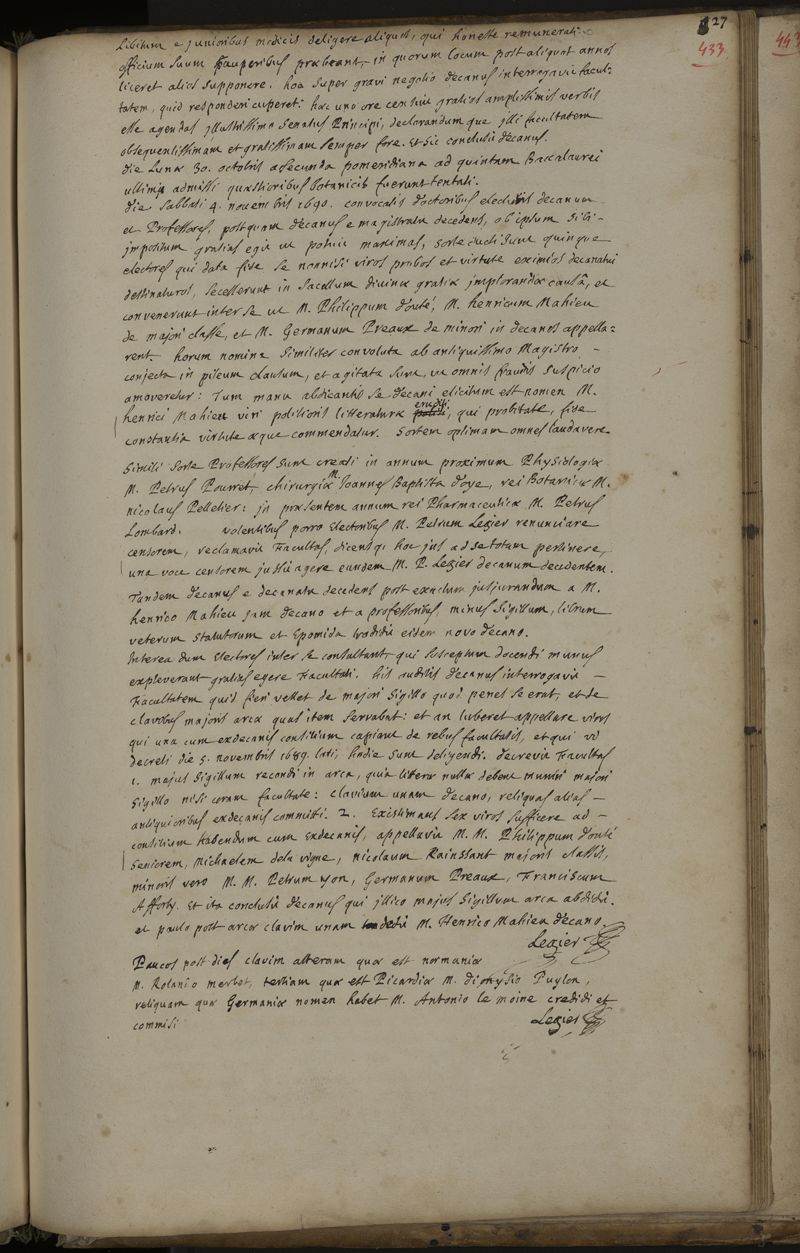 827
433
443
Libitum e junioribus medicis deligere aliquot, qui honeste remunerati
officium suum pauperibus præbeant, in quorum locum post aliquot annos
liceret alios supponere. hoc super gravi negotio decanus interrogavit facul-
tatem, quid responderi cuperet: hæc uno ore censuit gratias amplissimis verbis
esse agendas illustrissimo Senatus Principi, declarandum que illi facultatem
obsequentissimam et gratissimam semper fore. et sic conclusit decanus.
die Lunæ 30. octobris a secunda pomeridiana ad quintam Baccalaurei
ultimi admissi quæstionibus botanicis fuerunt tentati.
die Sabbati 4. novembris 1690. convocatis doctoribus electuris decanum
et Professores, postquam decanus e magistratu decedens, ob ipsum sibi-
impositum gratias egit ut potuit maximas, sorte ducti sunt quinque
electores qui data fide se nonnisi viros probos et virtute eximios decanatui
destinaturos, secesserunt in sacellum divinæ gratiæ implorandæ causâ, et
convenerunt inter se ut M. Philippum douté, M. henricum Mahieu
de majori classe, et M. Germanum Preaux de minori in decanos appella=
rent. horum nomina similiter convoluta ab antiquissimo Magistro -
conjecta in pileum clausum, et agitata sunt, ut omnis fraudis suspicio
amoveretur: Tum manu abdicantis se decani elicitum est nomen M.
henrici Mahieu viri politioris litteraturæ eruditi, qui probitate, fide
constantia virtute æque commendatur. Sortem optimam omnes laudavere.
Simili sorte Professores sunt creati in annum proximum Physiologiæ
M. Petrus Pourret, chirurgiæ M. Joannes Baptista doye, rei Botanicæ M.
nicolaus Pelletier: in præsentem annum rei Pharmaceuticæ M. Petrus
Lombard. volentibus porro Electoribus M. Petrum Legier renunciare
censorem, reclamavit Facultas, dicens qd hoc jus ad se totam pertinere,
una voce censorem jussit agere eundem M. P. Legier decanum decedentem.
Tandem decanus e decanatu decedens post exactum jusjurandum a M.
henrico Mahieu jam decano et a professoribus, minus sigillum, librum
veterum statutorum et Epomida tradidit eidem novo decano.
Interea dum Electores inter se consultant, qui susceptum docendi munus
expleverant gratias egere Facultati. his auditis decanus interrogavit -
Facultatem quid fieri vellet de majori sigillo quod penes se erat, et de
clavibus majoris arcæ quas item servabat: et an luberet appellare viros
qui una cum exdecanis consilium capiant de rebus facultatis, et qui vi
decreti die 5. novembris 1689. lati, hodie sunt deligendi. decrevit Facultas
1. majus sigillum recondi in arca, quia literæ nullæ debent muniri majori
sigillo nisi coram facultate: clavium unam decano, reliquas alias -
antiquioribus exdecanis committi. 2. Existimans sex viros sufficere ad -
consilium habendum cum Exdecanis, appellavit M. M. Philippum douté
seniorem, Michaelem dela vigne, nicolaum Rainssant majoris classis,
minoris vero M. M. Petrum yon, Germanum Preaux, Franciscum
Afforty. Et ita conclusit decanus qui illico majus sigillum arca abdidit.
et paulo post arcæ clavim unam dedit M. Henrico Mahieu decano.
Legier
Paucos post dies clavim alteram quæ est normaniæ
M. Rolando merlet, tertiam quæ est Picardiæ M. dionysio Puylon,
reliquam quæ Germaniæ nomen habet M. Antonio le moine credidi et
commisi
Legier